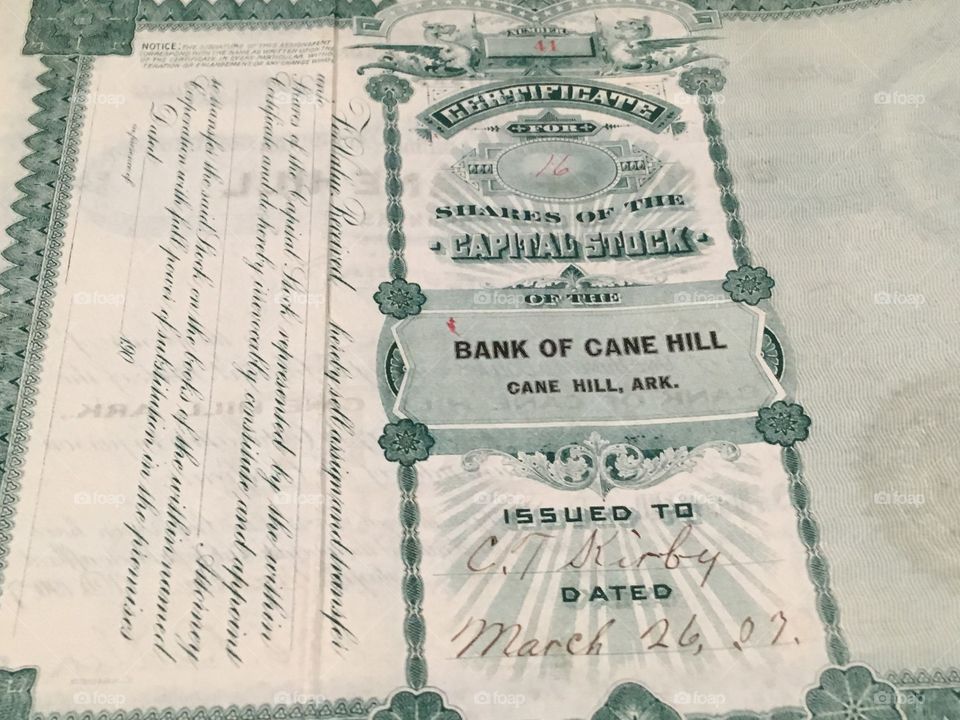 NUMBER
41
CERTIFICATE
FOR
16
SHARES OF THE
CAPITAL STOCK
OF THE
BANK OF CANE HILL
CANE HILL, ARK.
ISSUED TO
C. T Kirby
DATED
March 26, 07.
NOTICE: THE SIGNATURE OF THIS ASSIGNMENT
CORRESPOND WITH THE NAME AS WRITTEN UPON THE
OF THE CERTIFICATE IN EVERY PARTICULAR, WITHOUT
TERATION OR ENLARGEMENT OR ANY CHANGE WHAT
For Value Received hereby sell, assign and transfer
Shares of the Capital Stock represented by the within
Certificate and do hereby irrevocably constitute and appoint
Attorney
to transfer the said Stock on the books of the within named
Corporation with full power of substitution in the premises
Dated 190
In presence of
foap